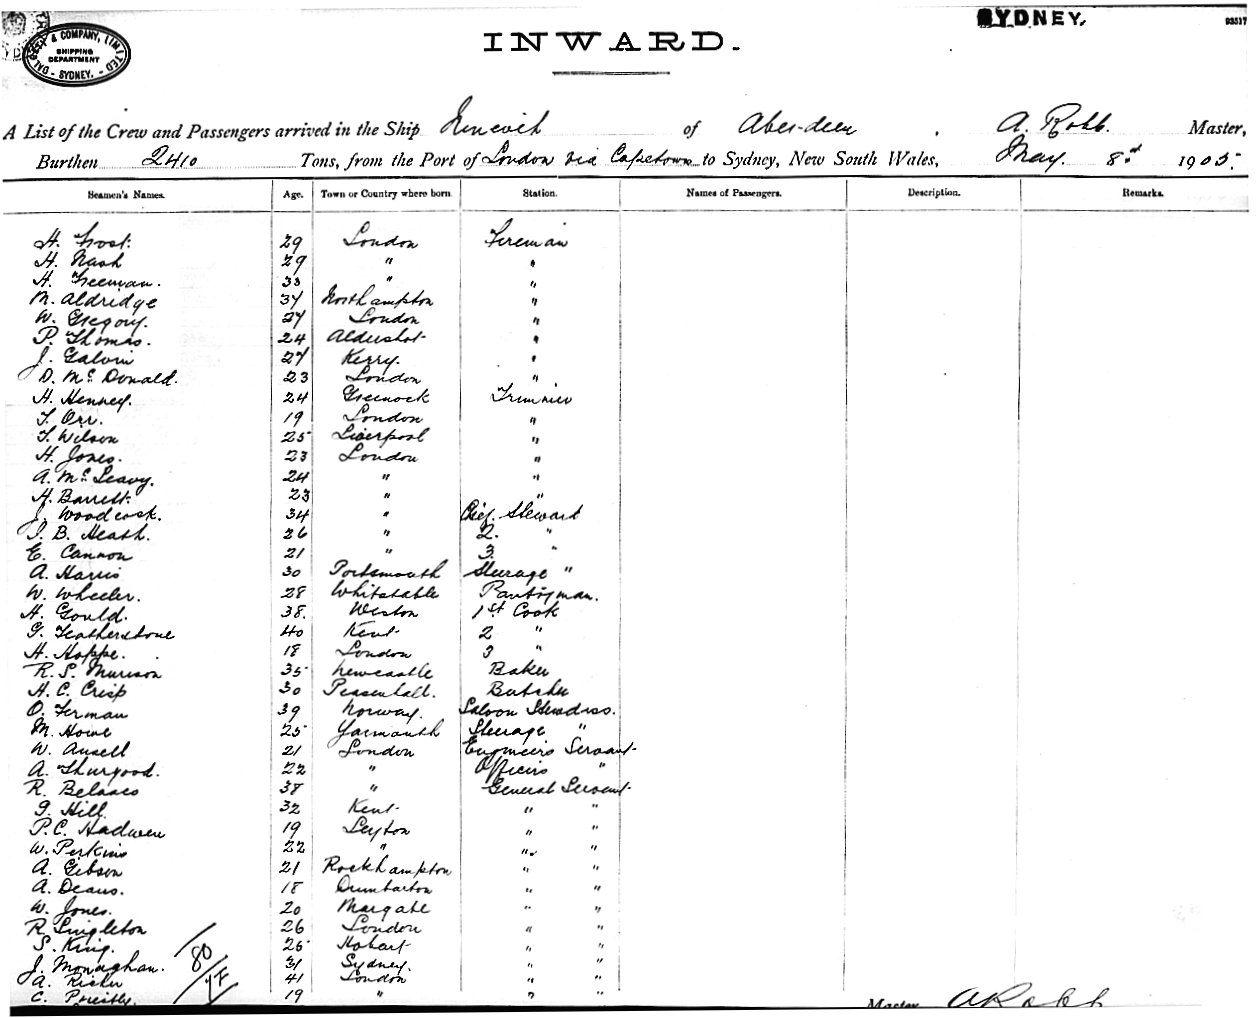 SYDNEY.
93517
DALGETY & COMPANY, LIMITED
SHIPPING DEPARTMENT
- SYDNEY. -
INWARD.
A List of the Crew and Passengers arrived in the Ship of Aberdeen, A. Robb. Master,
Burthen 2410 Tons, from the Port of London via Capetown to Sydney, New South Wales, May. 8th 1905.
Seamen's Names. Age. Town or Country where born. Station. Names of Passengers. Description. Remarks.
H. Frost. 29 London Fireman
H. Nash 29 " "
H. Freeman. 33 " "
M. Aldridge 34 Northampton "
W. Gregory. 27 London "
P. Thomas. 24 Aldershot "
J. Galvin 27 Kerry. "
D. McDonald. 23 London "
H. Henney. 24 Greenock Trimmer
T. Orr. 19 London "
T. Wilson 25 Liverpool "
H. Jones. 23 London "
A. McLeavy. 24 " "
H. Barrett. 23 " "
J. Woodcock. 34 " Chief. Stewart
J. B. Heath. 26 " 2. "
E. Cannon 21 " 3. "
A. Harris 30 Portsmouth Steerage "
W. Wheeler. 28 Whitstable Pantryman.
H. Gould. 38. Weston 1st Cook
G. Featherstone 40 Kent 2 "
H. Hoppe. 18 London 3 "
R. S. Murison 35 Newcastle Baker
H. C. Crisp 30 Peasenhall. Butcher
O. Ferman 39 Norway. Saloon Stewdess.
M. Howe 25 Yarmouth Steerage "
W. Ansell 21 London Engineers Servant
A. Thurgood. 22 " Officers "
R. 38 " General Servant
G. Hill 32 Kent " "
P. C. Hadwen 19 Leyton " "
W. Perkins 22 " " "
A. Gibson 21 Rockhampton " "
A. Deans. 18 Dumbarton " "
W. Jones. 20 Margate " "
R. Singleton 26 London " "
S. King. 25 Hobart " "
J. Monaghan. 31 Sydney. " "
A. 41 London " "
C. Priestly. 19 " " "
80
Master A Robb